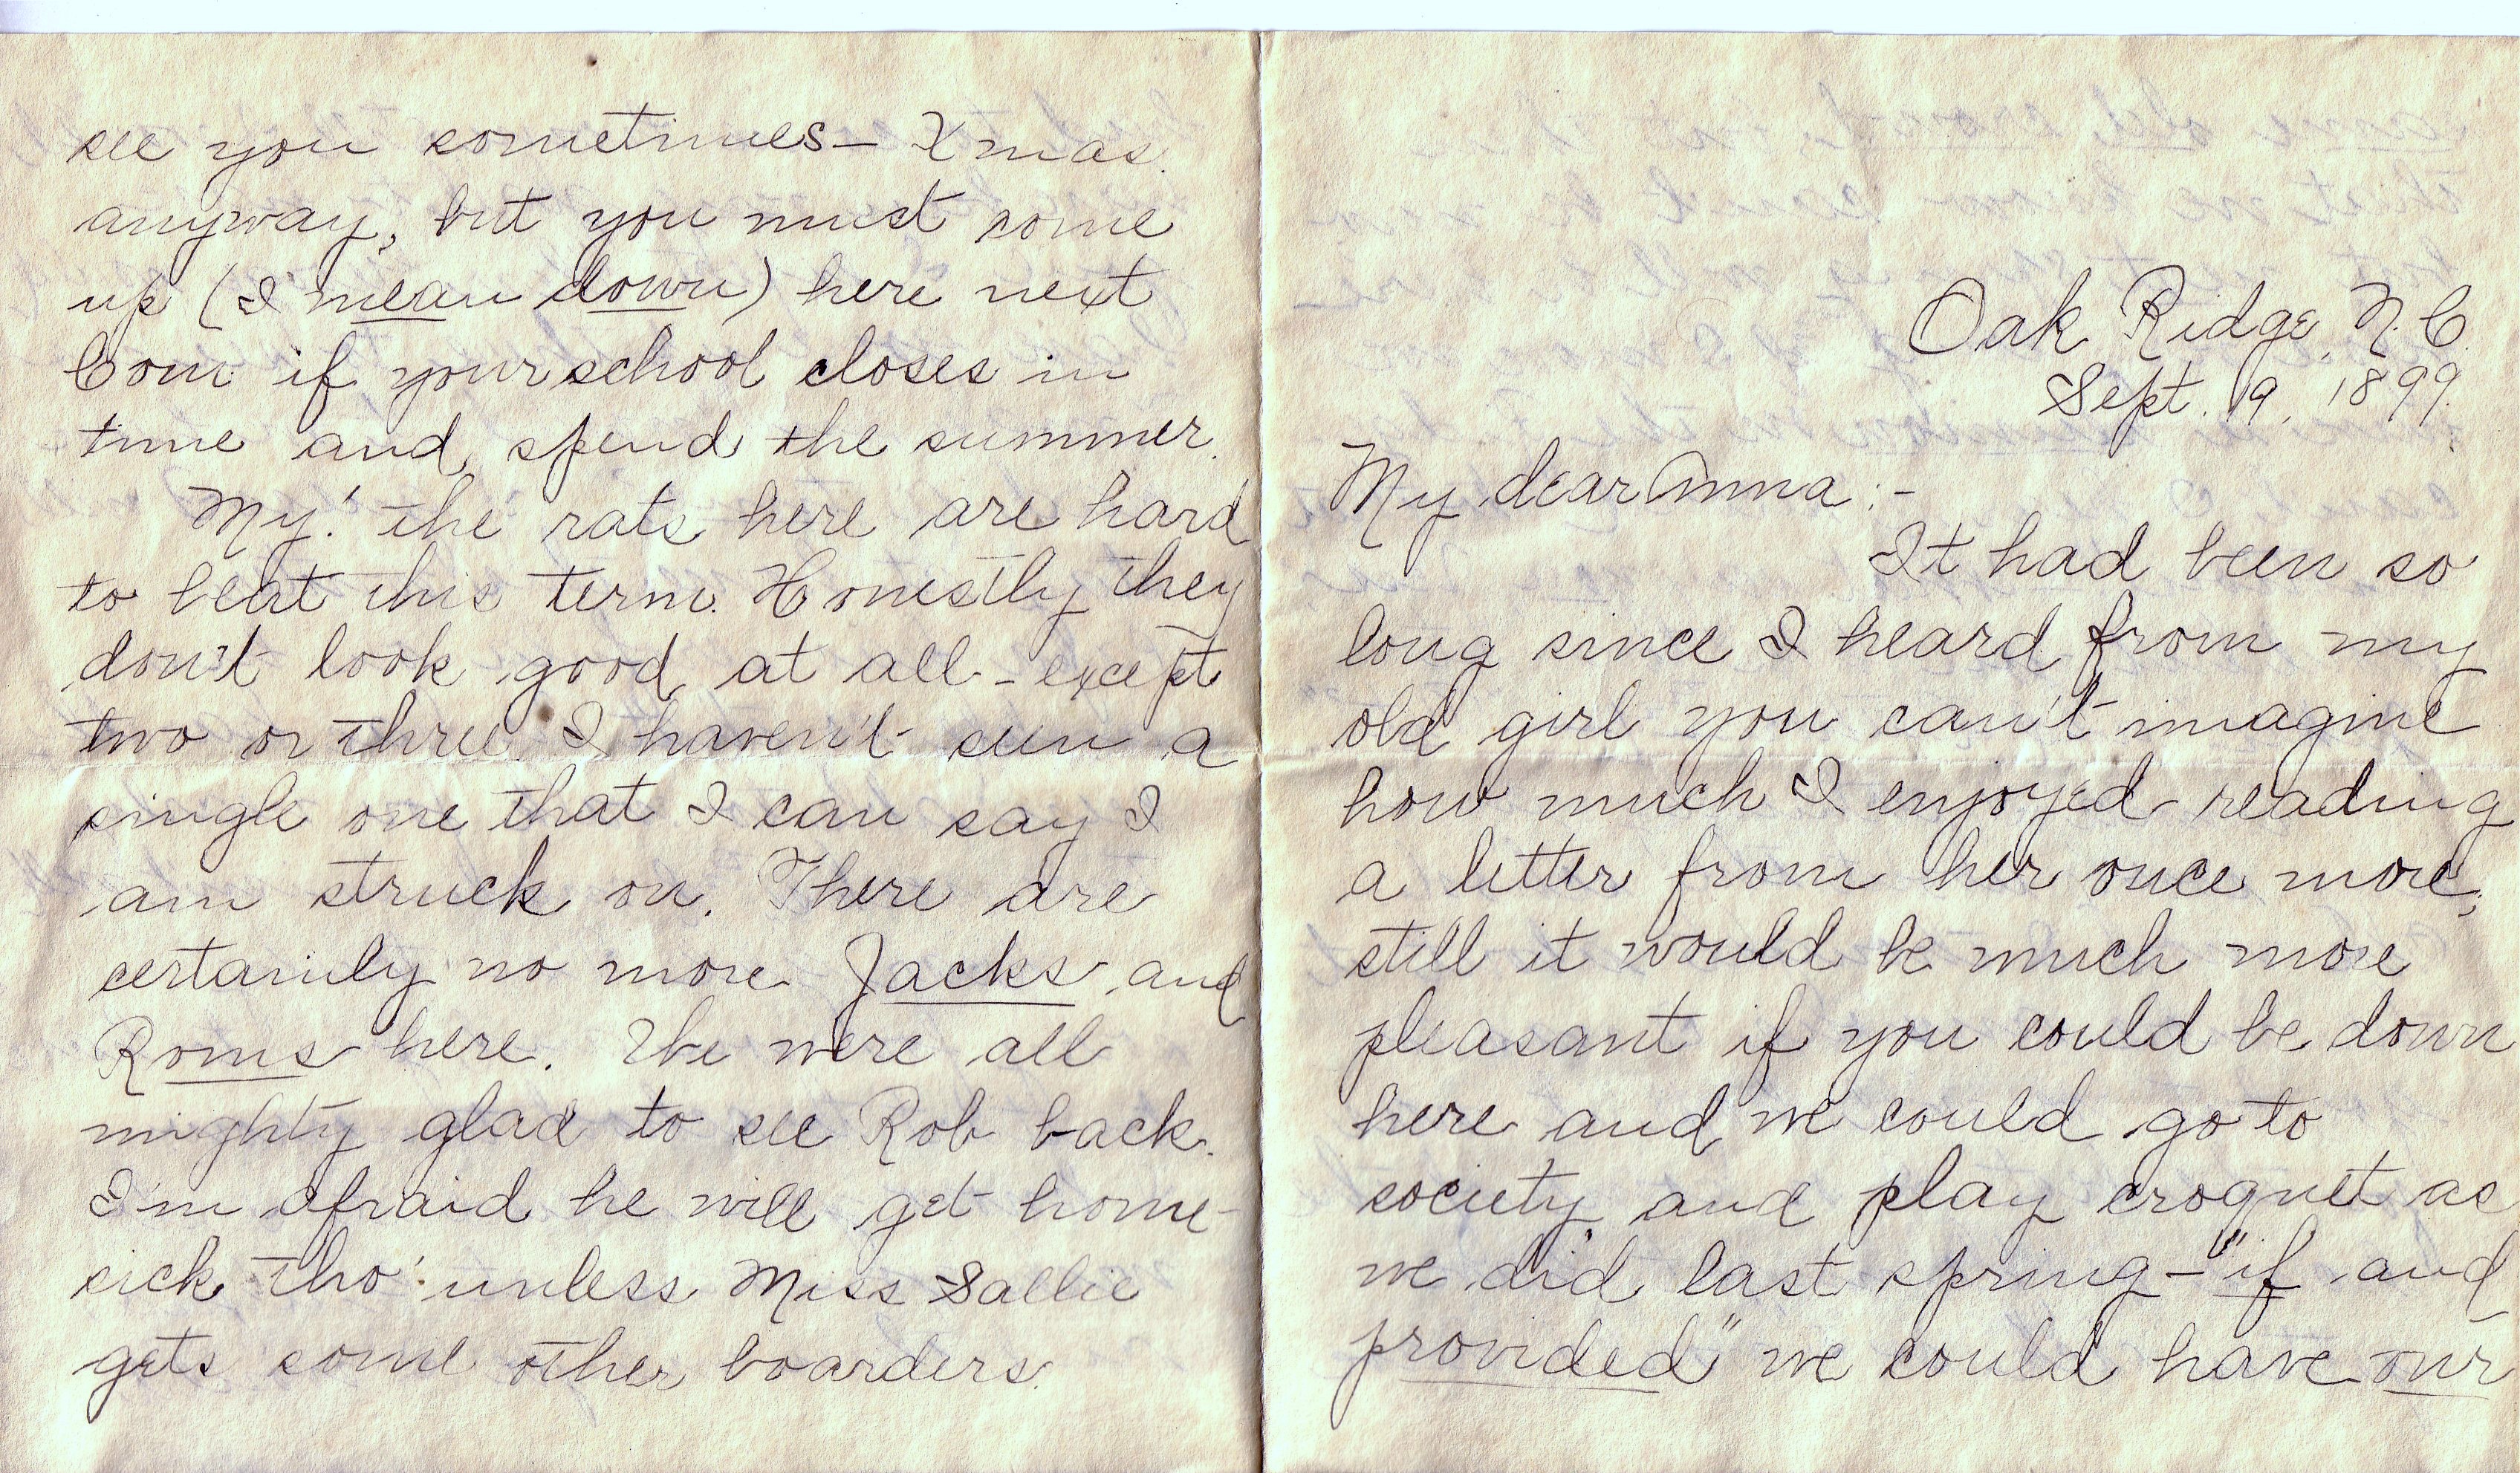 Oak Ridge, N.C.
Sept. 19, 1899.
My dear Anna:-
It had been so
long since I heard from my
old girl you can't imagine
how much I enjoyed reading
a letter from her once more,
still it would be much more
pleasant if you could be down
here and we could go to
society and play croquet as
we did last spring - "if and
provided" we could have our
see you sometimes - Xmas.
anyway, but you must come
up (I mean down) here next
Com. if your school closes in
time and spend the summer.
My! the rats here are hard
to beat this term. Honestly they
don't look good at all - except
two or three. I haven't seen a
single one that I can say I
am struck on. There are
certainly no more Jacks and
Roms here. We were all
mighty glad to see Rob back.
I'm afraid he will get home-
sick tho' unless Miss Sallie
gets some other boarders.